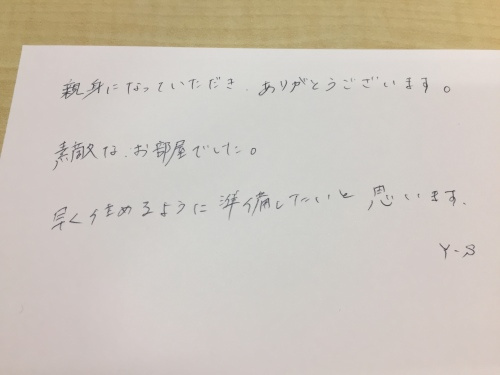 親身になっていただき、ありがとうございます。
素敵な、お部屋でした。
早く住めるように準備したいと思います。
Y-S